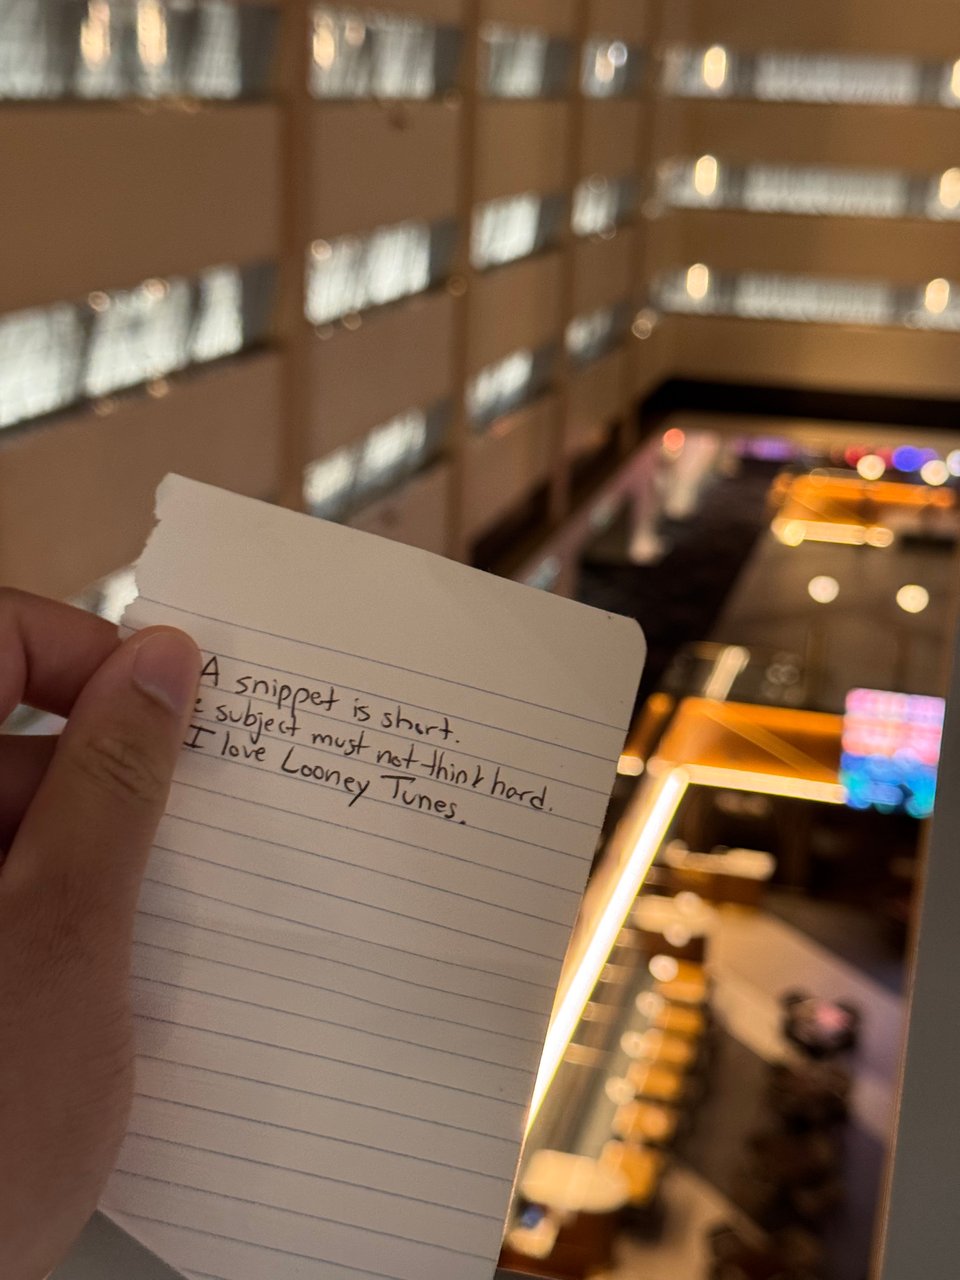 A snippet is short.
subject must not think hard.
I love Looney Tunes.